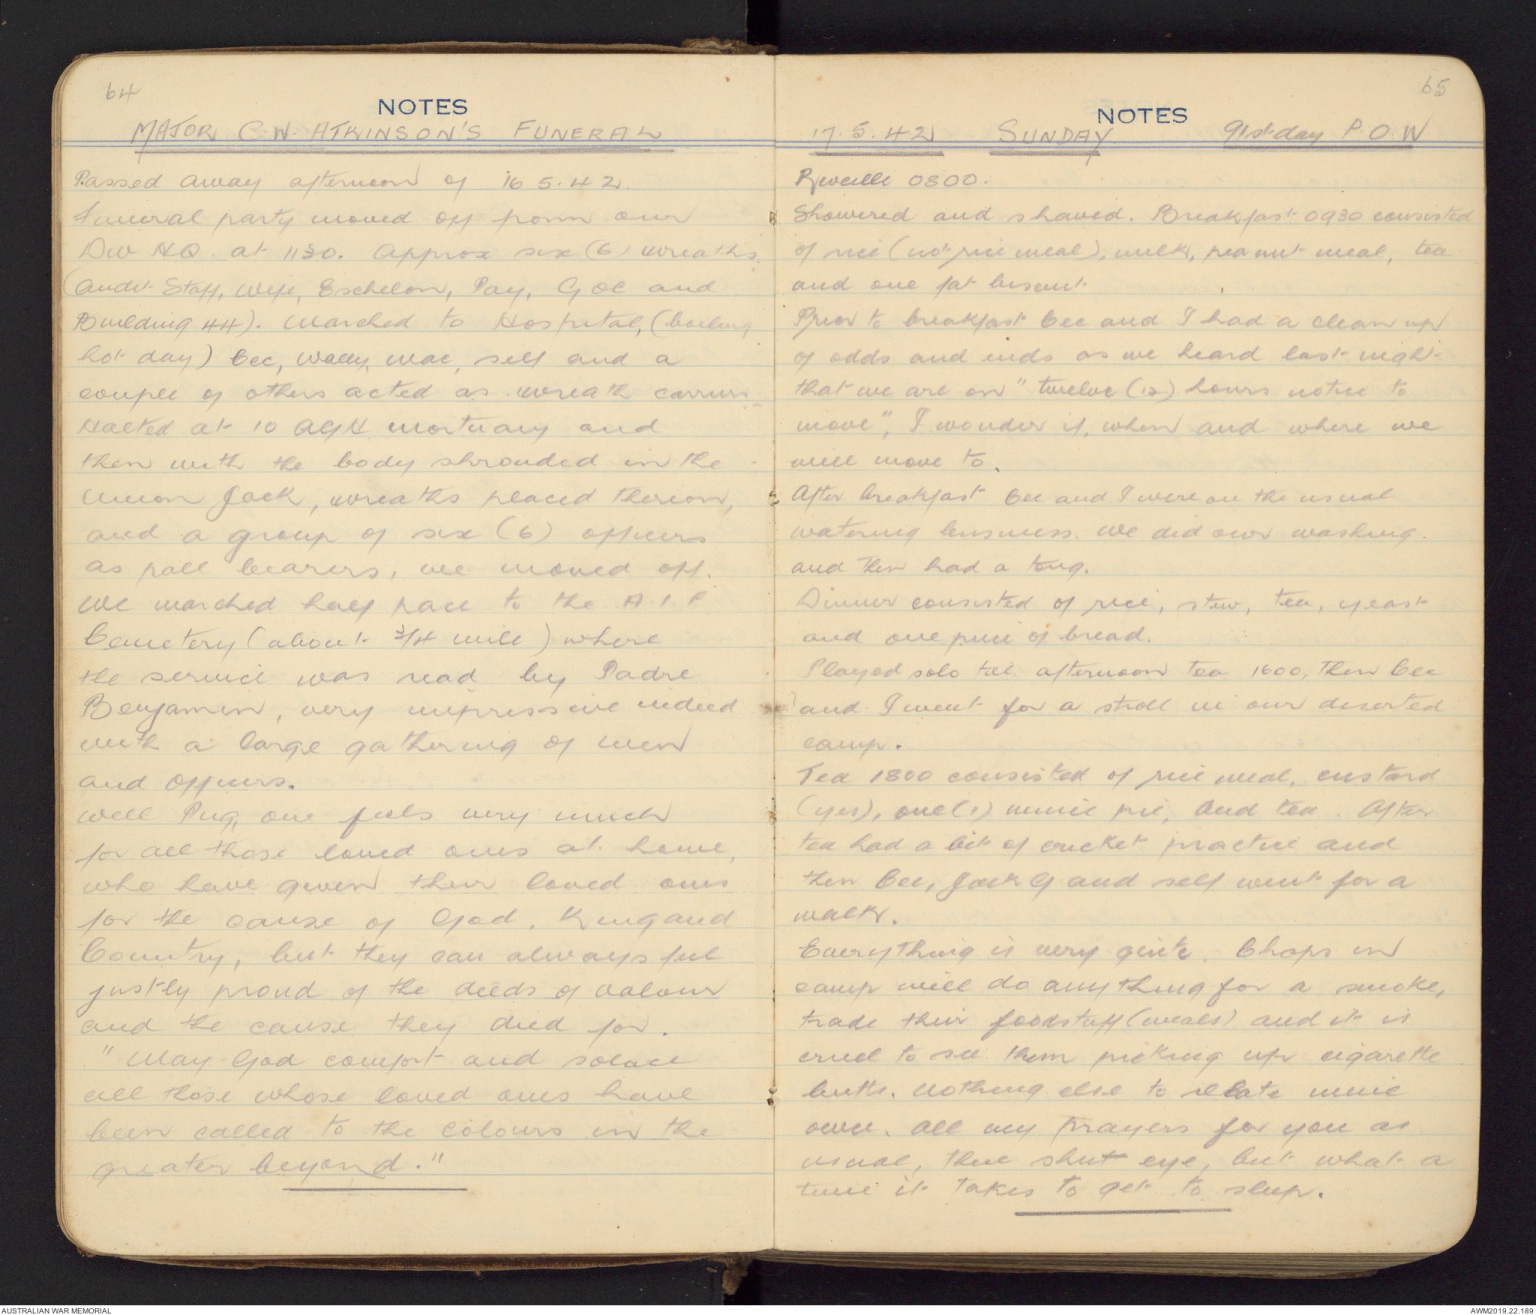 64
NOTES
MAJOR C.W. ATKINSON'S FUNERAL
Passed away afternoon of 16.5.42.
Funeral party moved off from our
Div HQ. at 1130. Approx six (6) wreaths
(Audit Staff, Wife, Eschelon, Pay, GOC and
Building 44). Marched to Hospital, (boiling
hot day) Cec, Wally, Mac, self and a
couple of others acted as wreath carriers
Halted at 10 AGH mortuary and
then with the body shrouded in the
Union Jack, wreaths placed thereon,
and a group of six (6) officers
as pall bearers, we moved off.
We marched half pace to the A.I.F
Cemetery (about 3/4 mile) where
the service was read by Padre
Benjamin, very impressive indeed
with a large gathering of men
and officers.
Well Pug, one feels very much
for all those loved ones at home,
who have given their loved ones
for the cause of God, King and
Country, but they can always feel
justly proud of the deeds of valour
and the cause they died for.
"May God comfort and solace
all those whose loved ones have
been called to the colours in the
greater beyond."
65
NOTES
17.5.42 SUNDAY 91st day P.O.W
Reveille 0800.
Showered and shaved. Breakfast 0930 consisted
of rice (not rice meal), milk, peanut meal, tea
and one fat biscuit.
Prior to breakfast Cec and I had a clean up
of odds and ends as we heard last night
that we are on "twelve (12) hours notice to
move", I wonder if, when and where we
will move to.
After breakfast Cec and I were on the usual
watering business. We did our washing.
and then had a
Dinner consisted of rice, stew, tea, yeast
and one piece of bread.
Played solo till afternoon tea 1600, then Cec
and I went for a stroll in our deserted
camp.
Tea 1800 consisted of rice meal, custard
(yes), one (1) mince pie, and tea. After
tea had a bit of cricket practice and
then Cec, Jack G and self went for a
walk.
Everything is very quite. Chaps in
camp will do anything for a smoke,
trade their foodstuff (meals) and it is
cruel to see them picking up cigarette
butts. Nothing else to relate mine
own. All my prayers for you as
usual, then shut eye, but what a
time it takes to get to sleep.
AUSTRALIAN WAR MEMORIAL
AWM2019.22.189